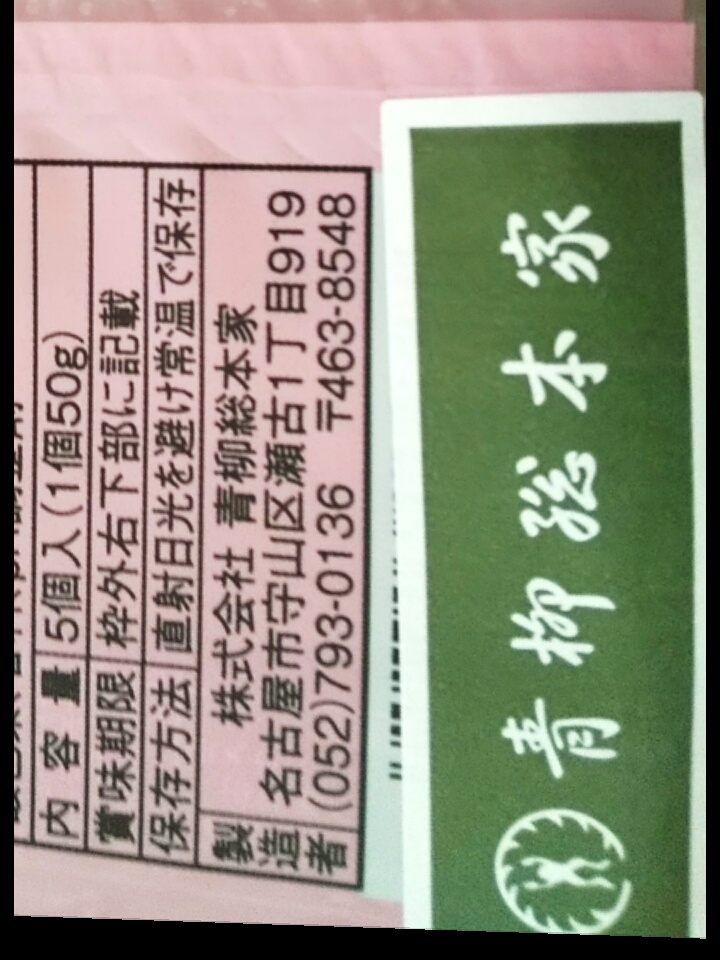 内容量 5個入(1個50g)
賞味期限 枠外右下部に記載
保存方法 直射日光を避け常温で保存
製造者 株式会社 青柳総本家
名古屋市守山区瀬古1丁目919
(052)793-0136 〒463-8548
青柳総本家